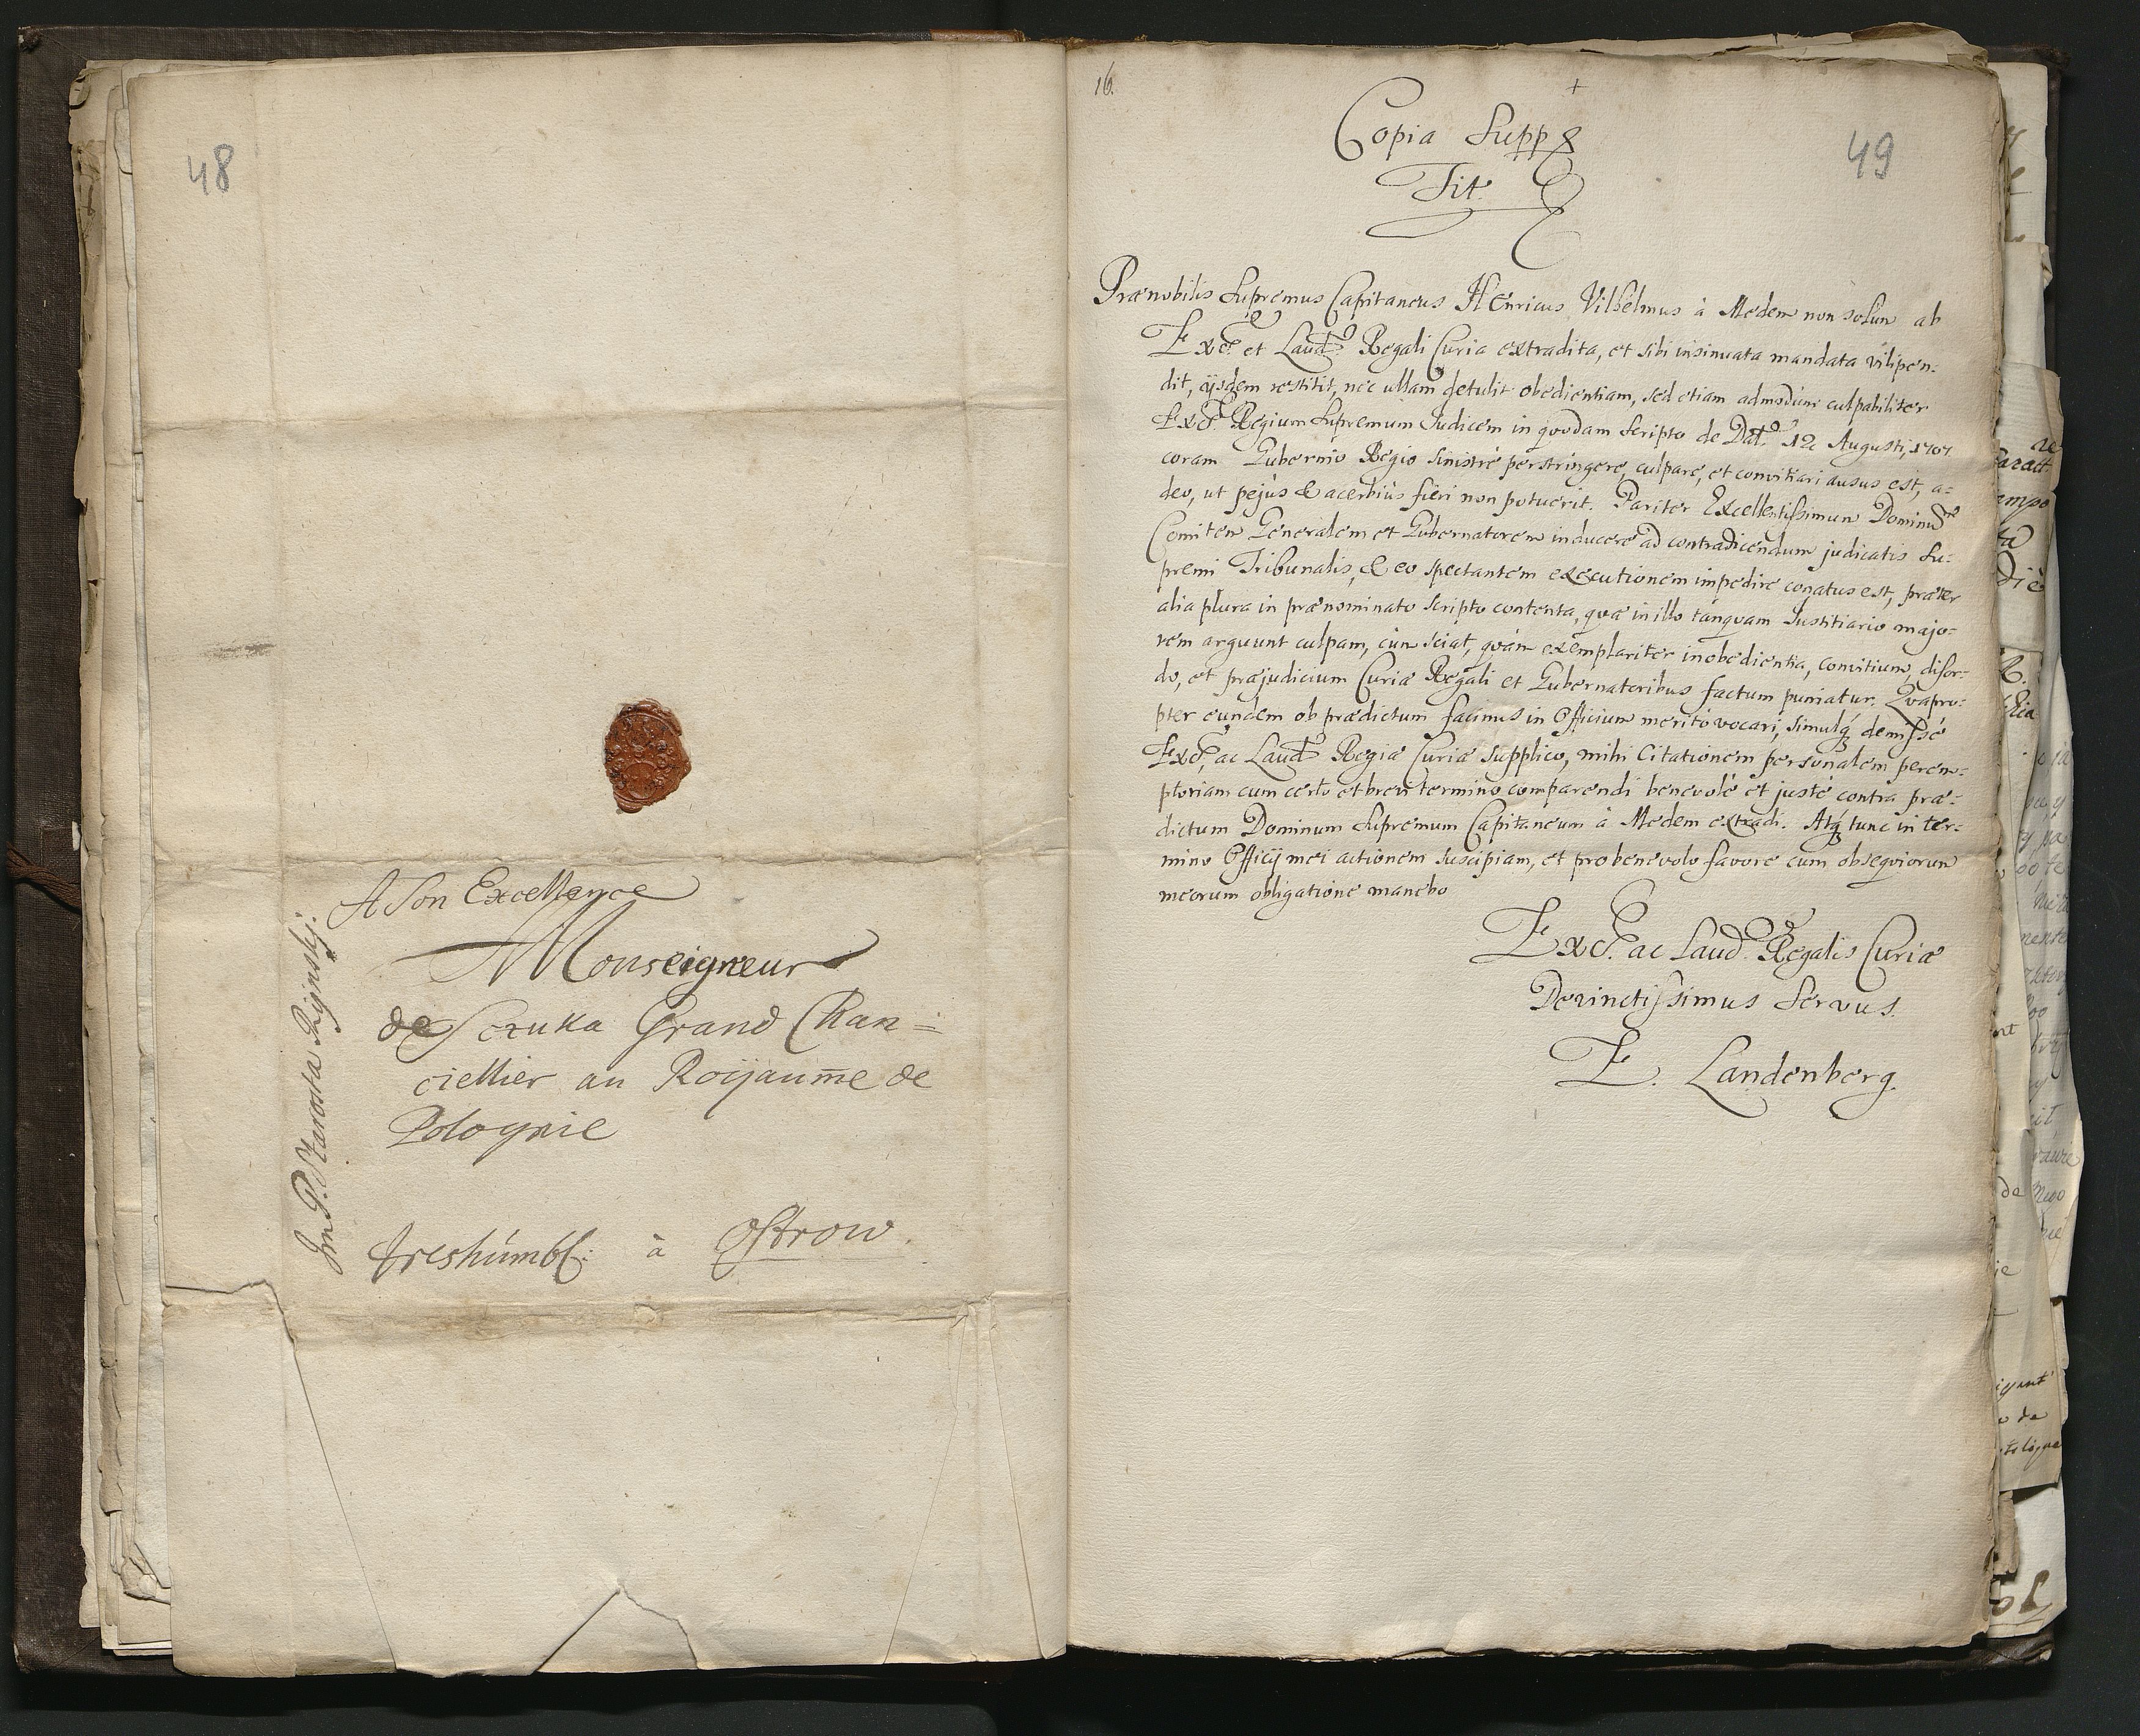 48
A Son Excellence
Monseigneur
de Sczuka Grand Chan=
ciellier au Roijaum̄e de
Polognie
treshumbl: à Ostrow.
Jm P. Starosta Rijnskj:
16.
+
49
Copia Supp
Tit.
Prænobilis Supremus Capitaneus HEnricus Vilhelmus à Medem non solùm ab
Exc. et Laud. Regali Curia extradita, et sibi insinuata mandata vilipen=
dit, ijsdem restitit, nec ullam detulit obedientiam, sed etiam admodùm culpabiliter
Exc. Regium Supremum Judicem in qvodam Scripto de Dat. 12 Augusti, 1707
coram Gubernio Regio sinistrè perstringere, culpare, et convitiari ausus est, a=
deo, ut pejùs & acerbiùs fieri non potuerit. Pariter Excellentissimum Dominum
Comitem Generalem et Gubernatorem inducere ad contradicendum judicatis Su=
premi Tribunalis, & eo spectantem executionem impedire conatus est, præter
alia plura in prænominato scripto contenta, qvæ in illo tanqvam Justitiario majo=
rem arguunt culpam, cùm sciat, qvàm exemplariter inobedientia, convitium, disor=
do, et præjudicium Curiæ Regali et Gubernatoribus factum puniatur. Qvapro=
pter eundem ob prædictum facinus in Officium meritò vocari, simulq; demissè
Exc. ac Laud. Regiæ Curiæ supplico, mihi Citationem personalem perem=
ptoriam cum certo et brevi termino comparendi benevolè et justè contra præ=
dictum Dominum Supremum Capitaneum à Medem extradi. Atq; tunc in ter=
mino Officij mei actionem suscipiam, et pro benevolo favore cum obseqviorum
meorum obligatione manebo
Exc. ac Laud. Regalis Curiæ
Devinctissimus Servus.
E. Landenberg.